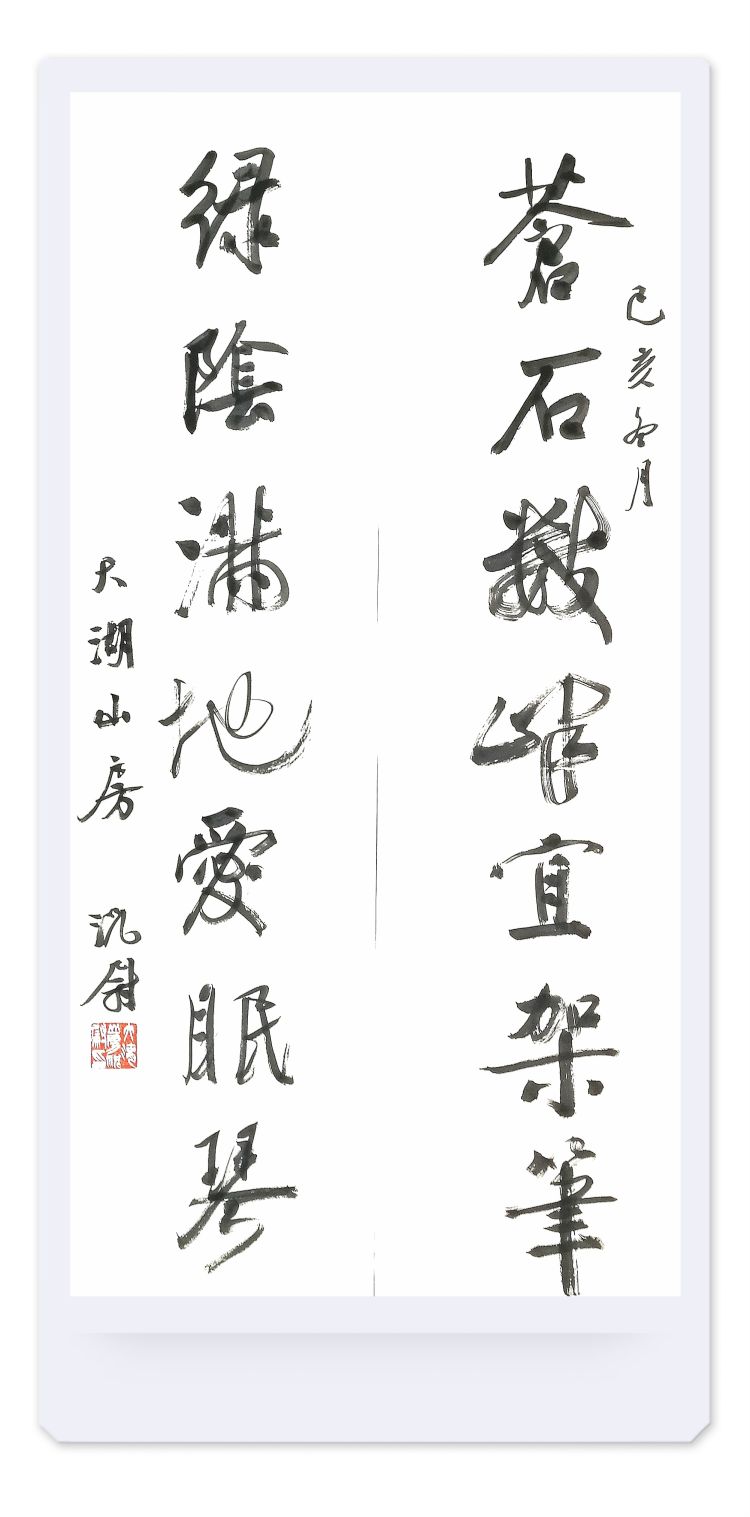 己亥冬月
蒼石數峰宜架筆
綠陰滿地愛眠琴
太湖山房